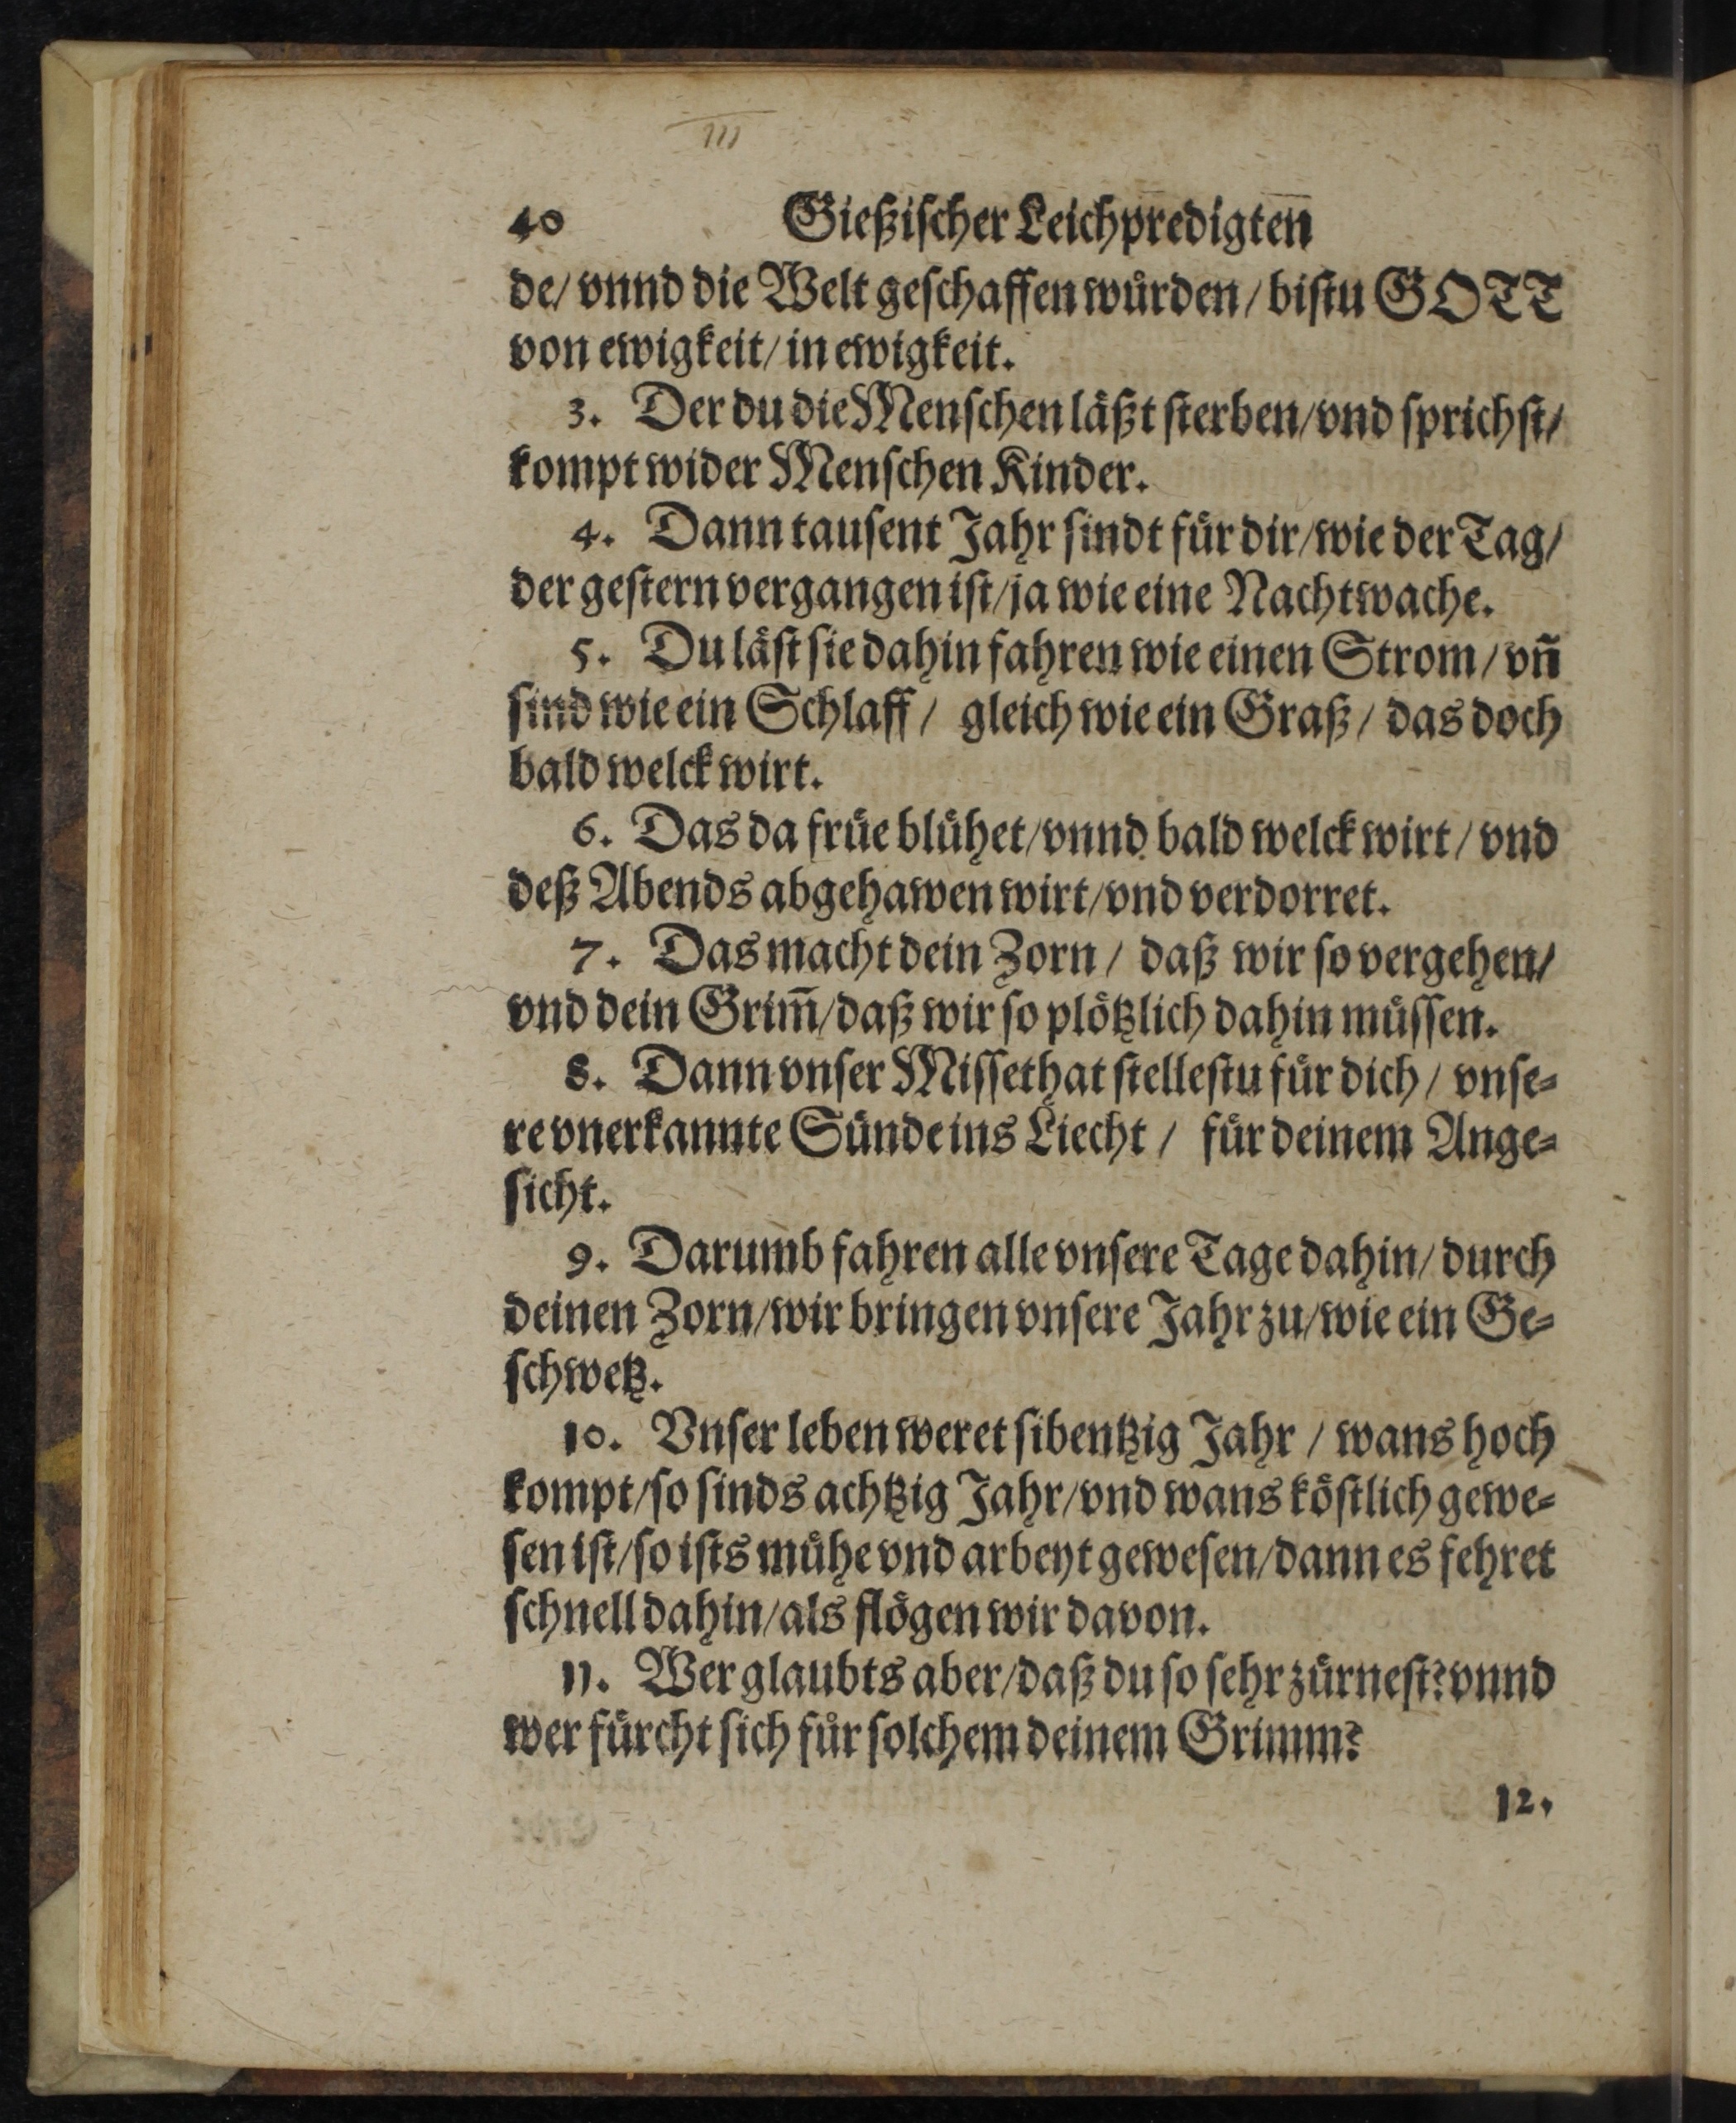 III
40 Gießischer Leichpredigten
de/ vnnd die Welt geschaffen würden/ bistu GOTT
von ewigkeit/ in ewigkeit.
3. Der du die Menschen läßt sterben/ vnd sprichst/
kompt wider Menschen Kinder.
4. Dann tausent Jahr sindt für dir/ wie der Tag/
der gestern vergangen ist/ ja wie eine Nachtwache.
5. Du läst sie dahin fahren wie einen Strom/ vñ
sind wie ein Schlaff/ gleich wie ein Graß/ das doch
bald welck wirt.
6. Das da früe blühet/ vnnd bald welck wirt/ vnd
deß Abends abgehawen wirt/ vnd verdorret.
7. Das macht dein Zorn/ daß wir so vergehen/
vnd dein Grim̃/ daß wir so plötzlich dahin müssen.
8. Dann vnser Missethat stellestu für dich/ vnse-
re vnerkannte Sünde ins Liecht/ für deinem Ange-
sicht.
9. Darumb fahren alle vnsere Tage dahin/ durch
deinen Zorn/ wir bringen vnsere Jahr zu/ wie ein Ge-
schwetz.
10. Vnser leben weret sibentzig Jahr/ wans hoch
kompt/ so sinds achtzig Jahr/ vnd wans köstlich gewe-
sen ist/ so ists mühe vnd arbeyt gewesen/ dann es fehret
schnell dahin/ als flögen wir davon.
11. Wer glaubts aber/ daß du so sehr zürnest? vnnd
wer fürcht sich für solchem deinem Grimm?
12.